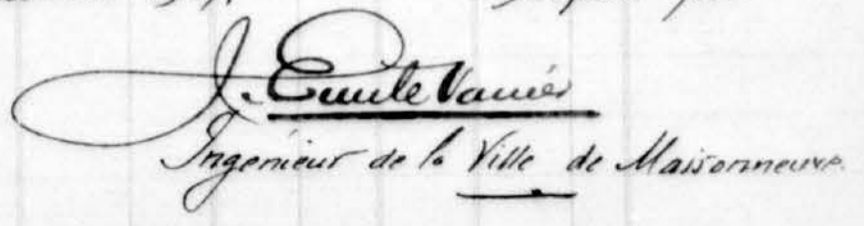 J. Emile Vanier
Ingenieur de la Ville de Maisonneuve.